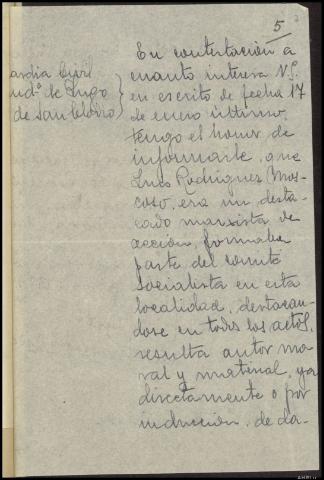 5
En contestación a
cuanto interesa V.S.
en escrito de fecha 17
de enero último,
tengo el honor de
informarle, que
Luis Rodríguez Mos-
coso, era un desta-
cado marxista de
acción, formaba
parte del comité
socialista en esta
localidad, destacan-
dose en todos los actos,
resulta autor mo-
ral y material, ya
directamente o por
inducción, de da-
ardia Civil
de Lugo
de San Clodio